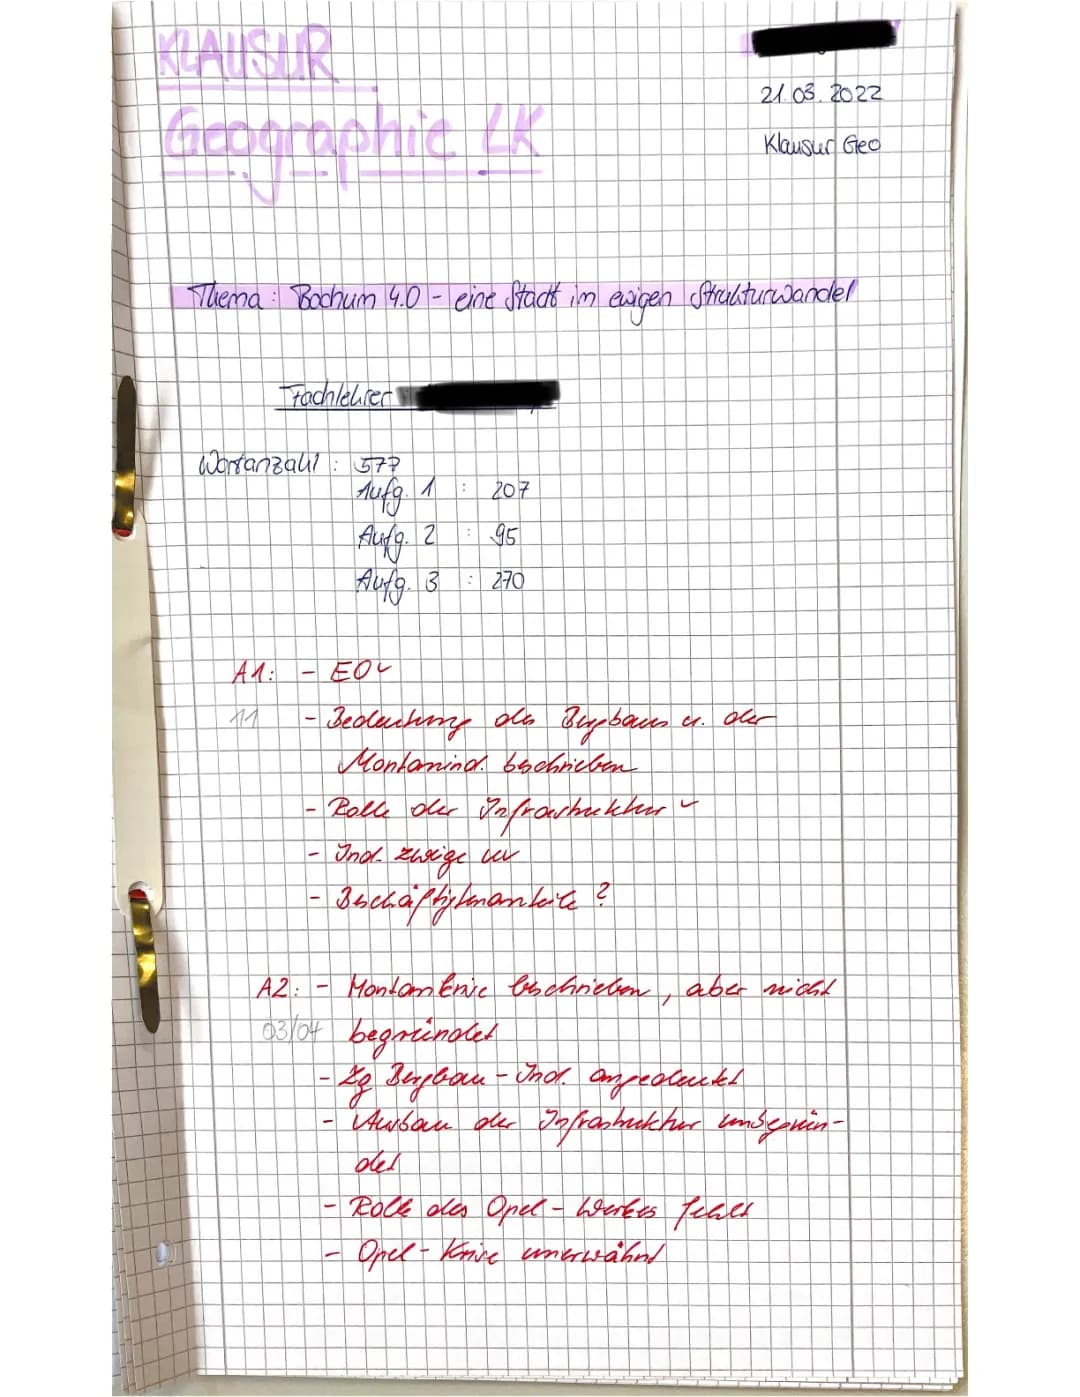 KLAUSUR
Geographie LK
21.03.2022
Klausur Geo
Thema: Bochum 4.0 - eine Stadt im ewigen Strukturwandel
Fachlehrer
Wortanzahl: 577
Aufg. 1 : 207
Aufg. 2 : 95
Aufg. 3 : 270
A1: - EO ✓
11 - Bedeutung des Bergbaus u. der
Montanind. beschrieben
- Rolle der Infrastruktur ✓
- Ind. zweige
- Beschäftigtenanteile ?
A2: - Montankrise beschrieben, aber nicht
03/04 begründet
- Zg Bergbau - Ind. angedeutet
- Ausbau der Infrastruktur unbegrün-
det
- Rolle des Opel-Werkes fehlt
- Opel-Krise unerwähnt